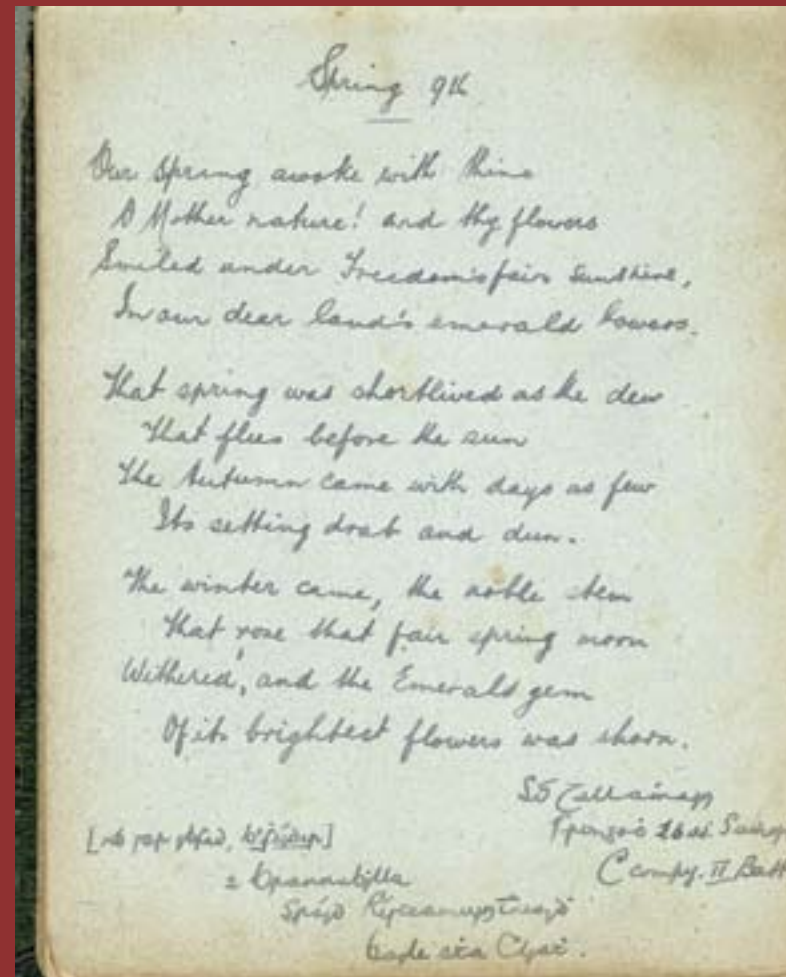 Spring 916
Our spring awoke with thine
O Mother nature! and thy flowers
Smiled under Freedom's fair sunshine,
In our dear land's emerald bowers.
That spring was shortlived as the dew
That flies before the sun
The Autumn came with days as few
Its setting drab and dun.
The winter came, the noble stem
That rose that fair spring morn
Withered, and the Emerald gem
Of its brightest flowers was shorn.
C Compy. II Batt